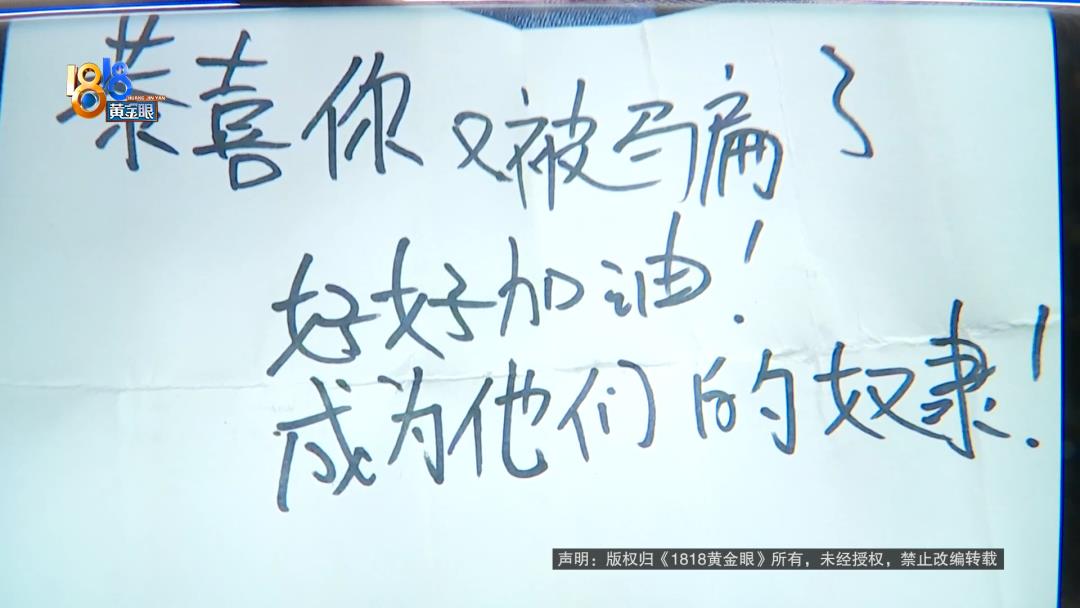 1818
HUANG JIN YAN
黄金眼
恭喜你又被骗了
好好加油!
成为他们的奴隶!
声明：版权归《1818黄金眼》所有，未经授权，禁止改编转载